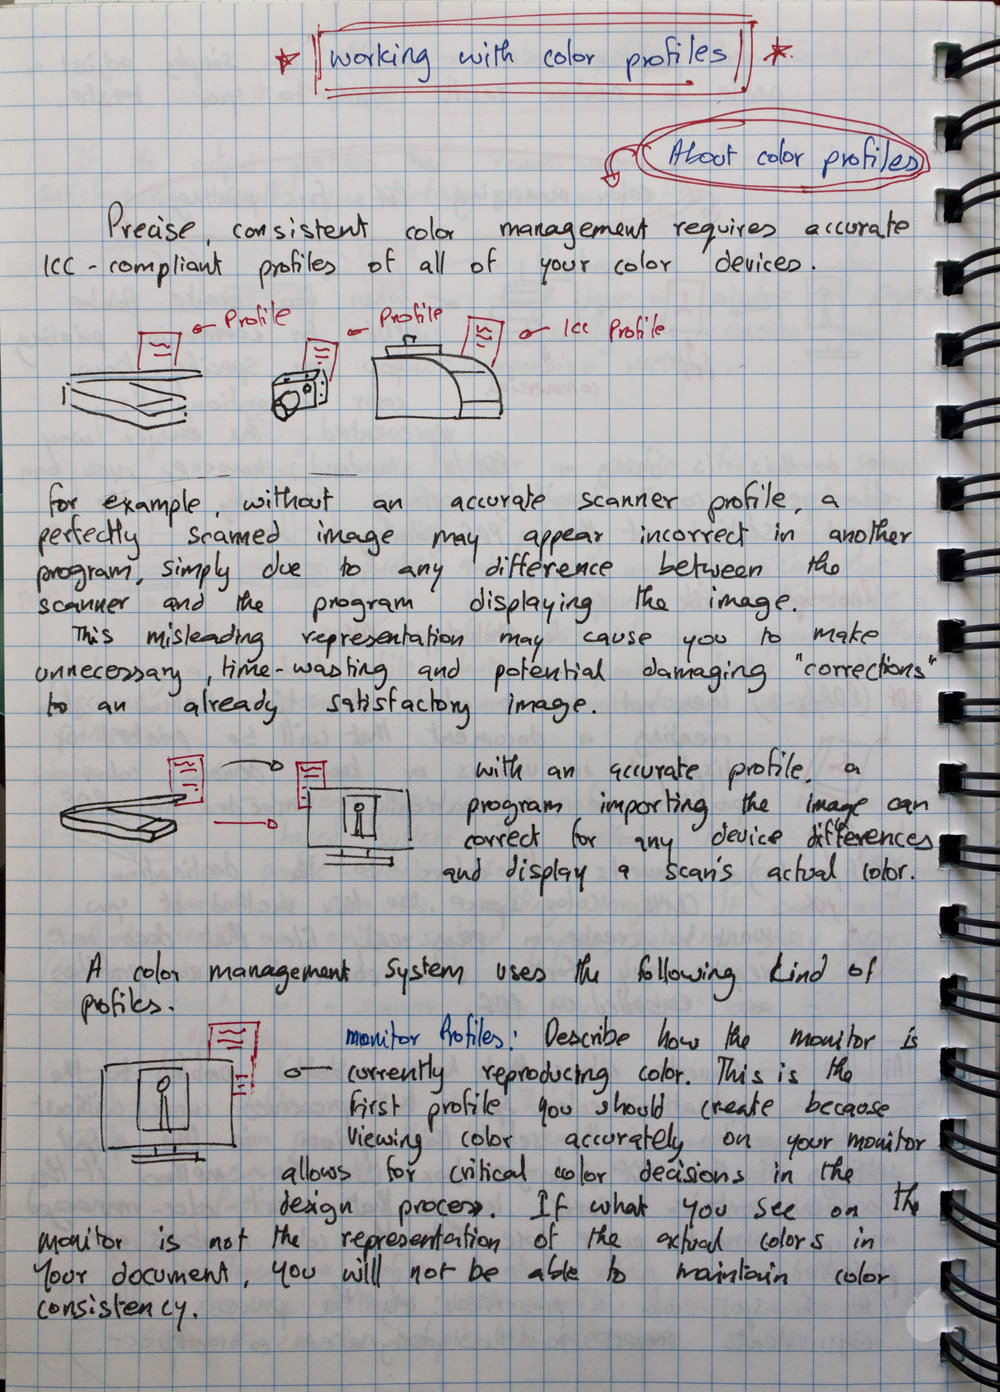 working with color profiles
About color profiles
Precise, consistent color management requires accurate
ICC - compliant profiles of all of your color devices.
Profile
Profile
ICC Profile
for example, without an accurate scanner profile, a
perfectly scanned image may appear incorrect in another
program, simply due to any difference between the
scanner and the program displaying the image.
This misleading representation may cause you to make
unnecessary, time-wasting and potential damaging "corrections"
to an already satisfactory image.
with an accurate profile, a
program importing the image can
correct for any device differences
and display a scan's actual color.
A color management System uses the following kind of
profiles.
monitor Profiles: Describe how the monitor is
currently reproducing color. This is the
first profile you should create because
viewing color accurately on your monitor
allows for critical color decisions in the
design process. If what you see on the
monitor is not the representation of the actual colors in
your document, you will not be able to maintain color
consistency.